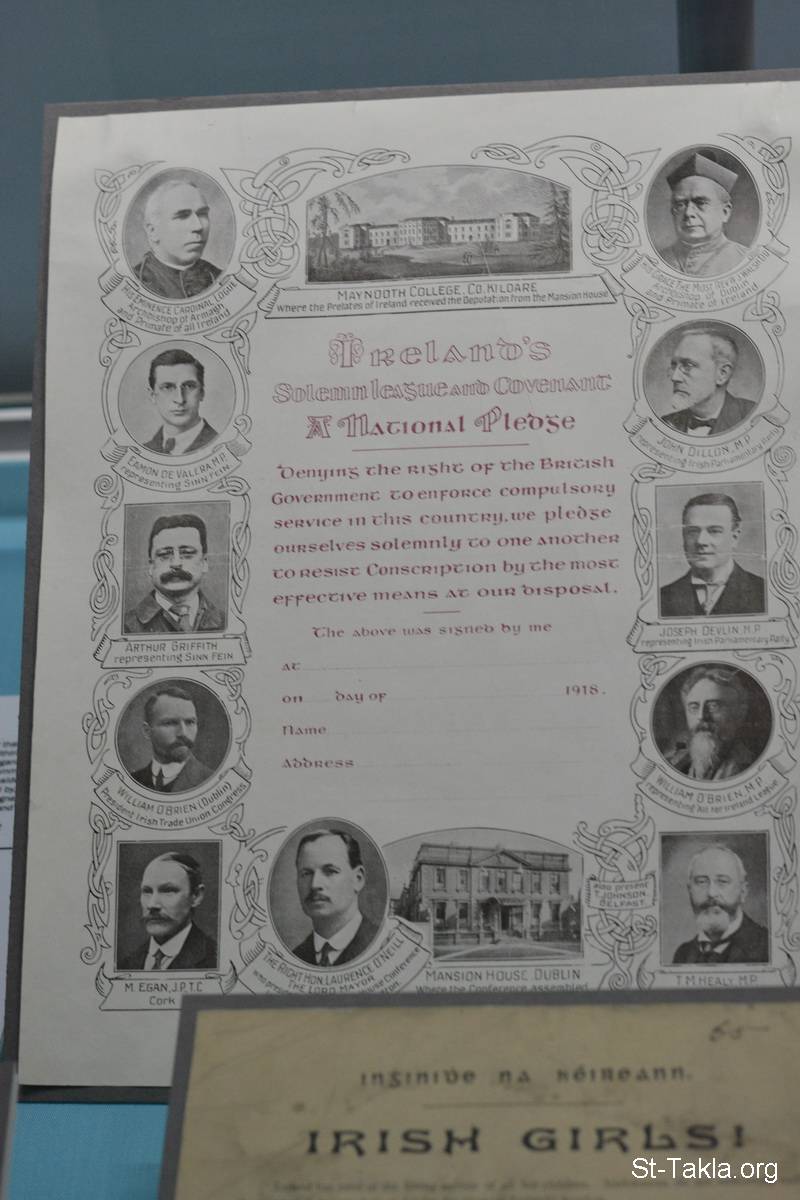 His Eminence Cardinal Logue
Archbishop of Armagh
and Primate of all Ireland
Maynooth College, Co. Kildare
Where the Prelates of Ireland received the Deputation from the Mansion House
His Grace The Most Rev.
Archbishop of Dublin
and Primate of Ireland
Ireland's
Solemn league and Covenant
A National Pledge
"Denying the right of the British
Government to enforce compulsory
service in this country, we pledge
ourselves solemnly to one another
to resist Conscription by the most
effective means at our disposal.
The above was signed by me
at
on day of 1918.
Name
Address
Eamon de Valera, M.P.
representing Sinn Fein
Arthur Griffith
representing Sinn Fein
William O'Brien (Dublin)
President Irish Trade Union Congress
M. Egan, J.P. T.C
Cork
John Dillon, M.P.
representing Irish Parliamentary Party
Joseph Devlin, M.P.
representing Irish Parliamentary Party
William O'Brien, M.P.
representing All for Ireland League
also present
T. Johnson,
Belfast
T.M. Healy, M.P.
The Right Hon. Laurence O'Neill
The Lord Mayor
Conference
Mansion House Dublin
Where the Conference assembled
65
Inġiniḋe na hÉireann.
IRISH GIRLS!
St-Takla.org